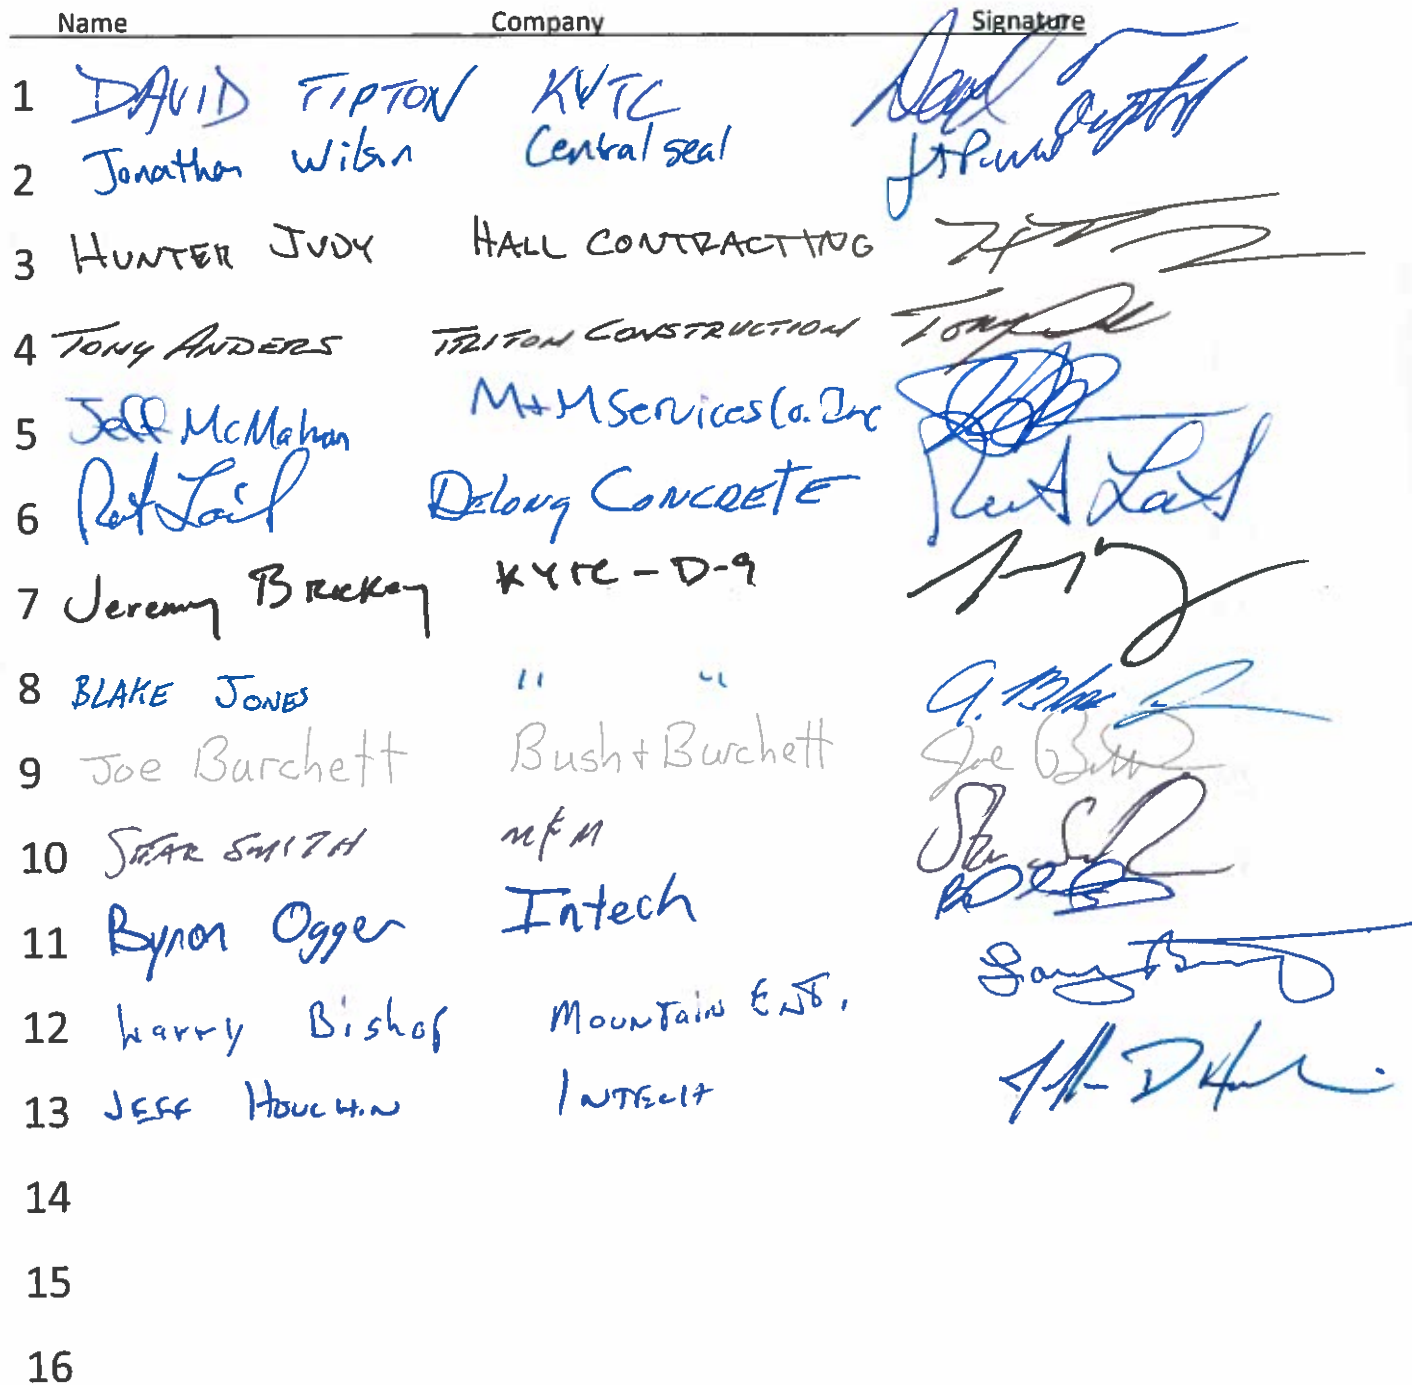 Name Company Signature
1 DAVID TIPTON KYTC
2 Jonathan Wilson Central seal
3 HUNTER JUDY HALL CONTRACTING
4 TONY ANDERS TRITON CONSTRUCTION Tony
5 Jeff McMahan M+M Services Co. Inc
6 Delong CONCRETE
7 Jeremy Brickey KYTC - D-9
8 BLAKE JONES " "
9 Joe Burchett Bush + Burchett Joe
10 SMITH M & M
11 Byron Ogger Intech
12 Larry Bishop Mountain Ent.
13 JEFF HOUCHIN INTECH
14
15
16